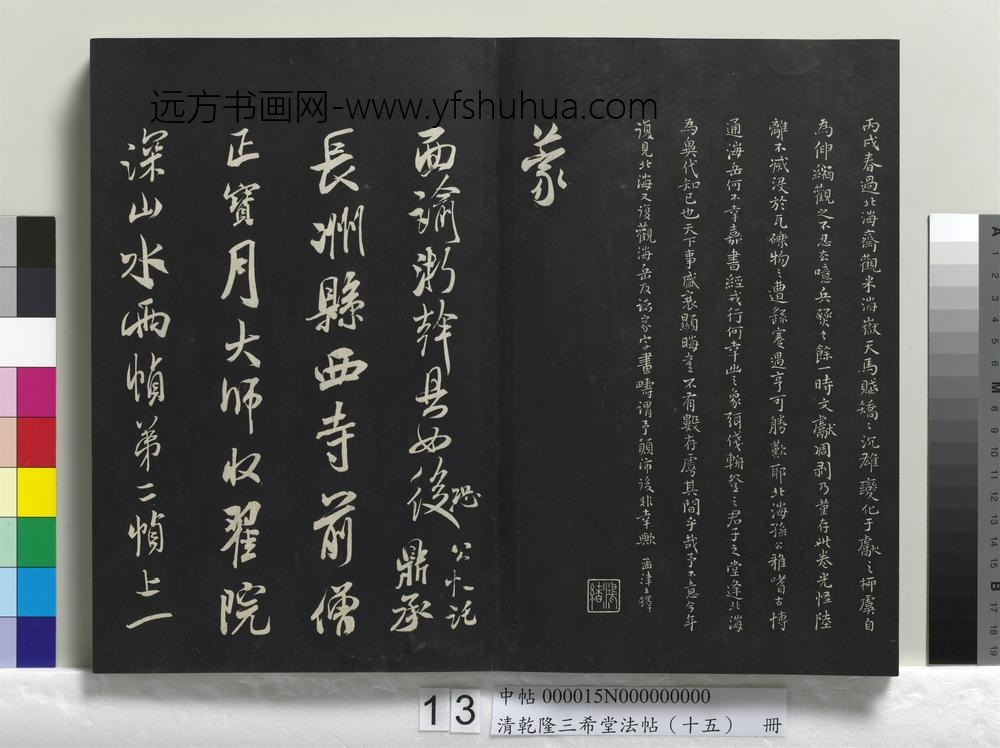 远方书画网-www.yfshuhua.com
丙戌春過北海齋觀米海嶽天馬賦矯〻沉雄變化于獻〻柳虞自
為伸縮觀之不忍去噫兵燹之餘一時文獻凋剥乃堇存此卷光怪陸
離不滅沒於瓦礫物〻遭錄蹇遇亨可勝歎耶北海孫公雅嗜古博
通海岳何不幸嘉書經戎行何幸此〻象殘翰登〻君子之堂逢北海
為異代知己也天下事盛衰顯晦塞不有數存虖其間乎哉予不意今年
復見北海又復觀海岳及諸家字畫疇謂予顛沛後非幸歟 孟津王鐸
蒙
面諭浙幹具如後
恐公忙託
鼎承
長洲縣西寺前僧
正寶月大師收翟院
深山水兩幀第二幀上一
13
中帖 000015N000000000
清乾隆三希堂法帖（十五） 冊